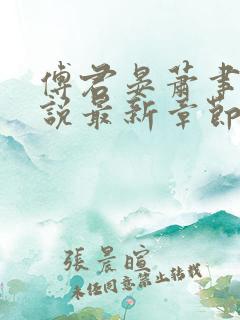 傅君晏蕭書
說最新章節
張晨暄
未經同意禁止轉載